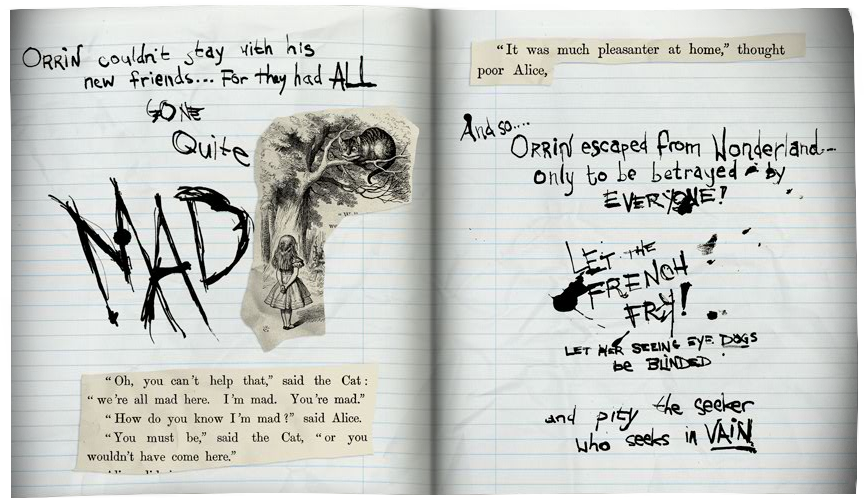 ORRIN couldn't stay with his
new friends... For they had ALL
GONE
Quite
MAD
"Oh, you can't help that," said the Cat:
"we're all mad here. I'm mad. You're mad."
"How do you know I'm mad?" said Alice.
"You must be," said the Cat, "or you
wouldn't have come here."
"It was much pleasanter at home," thought
poor Alice,
And so....
ORRIN escaped from Wonderland...
only to be betrayed by
EVERYONE!
LET THE
FRENCH
FRY!
LET HER SEEING EYE DOGS
be BLINDED
and pity the seeker
who seeks in VAIN